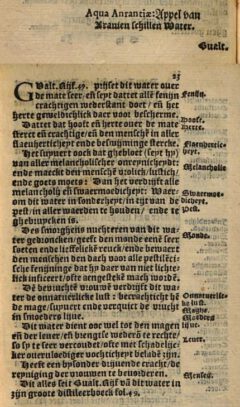 Aqua Arrantiæ: Appel van
Aranien schillen Water.
Gualt.
23
Gualt. Rijf. 49. prijset dit water ouer
de mate seer/ en seyt dattet alle fenijn
crachtigen wederstant doet/ en het
herte geweldichlick daer voor bescherme.
Dattet dat hooft en herte ouer de mate
sterct en crachtige/ en den mensche in aller
flaeuherticheyt ende beswijminge stercke.
Het suyuert oock dat ghebloet (seyt hy)
van aller melancholischer onreynicheydt
ende maeckt den mensche vrolick/ lustich/
ende goets moets: Van het verdrijft alle
melancholij en swaermoedicheyt: Waer-
om dit water in sonderheyt/ in tyt van de
pest/ in aller waerden te houden/ ende te
ghebruycken is.
Des smorghens nuchteren van dit wa-
ter gedroncken/ geeft den monde eenë seer
soeten ende lieffelicke ruck/ ende bewaert
den menschen den dach voor alle pestileri-
sche fenijninge dat hy daer van niet lichte-
lick infitieert/ ofte aengesteckt mach worde.
De bevruchte vrouwe verdrijft dit wa-
ter de onnatuerlicke lust: verwachticht he
de mage/ suyuert ende verquict de vrucht
in smoeders lijue.
Dit water dient oor wel tot den magen
en der leuer/ es brengt se wederō te rechte
so sy te seer vercoudet/ ofte met schadelic-
ker oueruloediger vochticheyt beladē zijn.
Heeft een bysonder dwinende cracht/ de
reyniging der vrouwen te bevoderen.
Dit alles seit Gualt. Rijf vā dit water in
zijn groote distileerboeck fol. 49.
Fenijn.
Hooft.
Herte.
Flauhertic-
heyt.
Melancholie
Swaermoe-
dicheyt.
Pest.
Monde.
Onnatuerlic-
ke lust.
Maghe.
Moeders
lijue.
Leuer.
Menses.